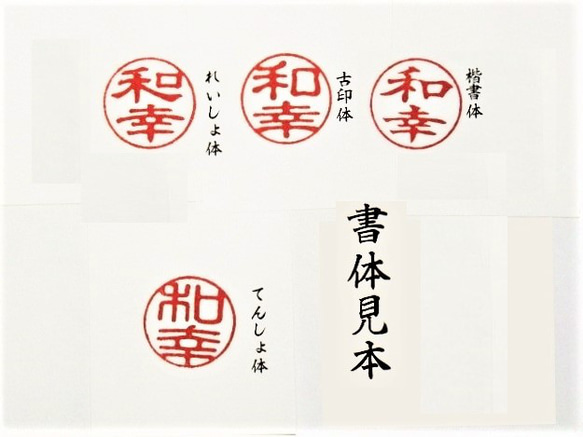 和幸
れいしょ体
和幸
古印体
和幸
楷書体
和幸
てんしょ体
書体見本